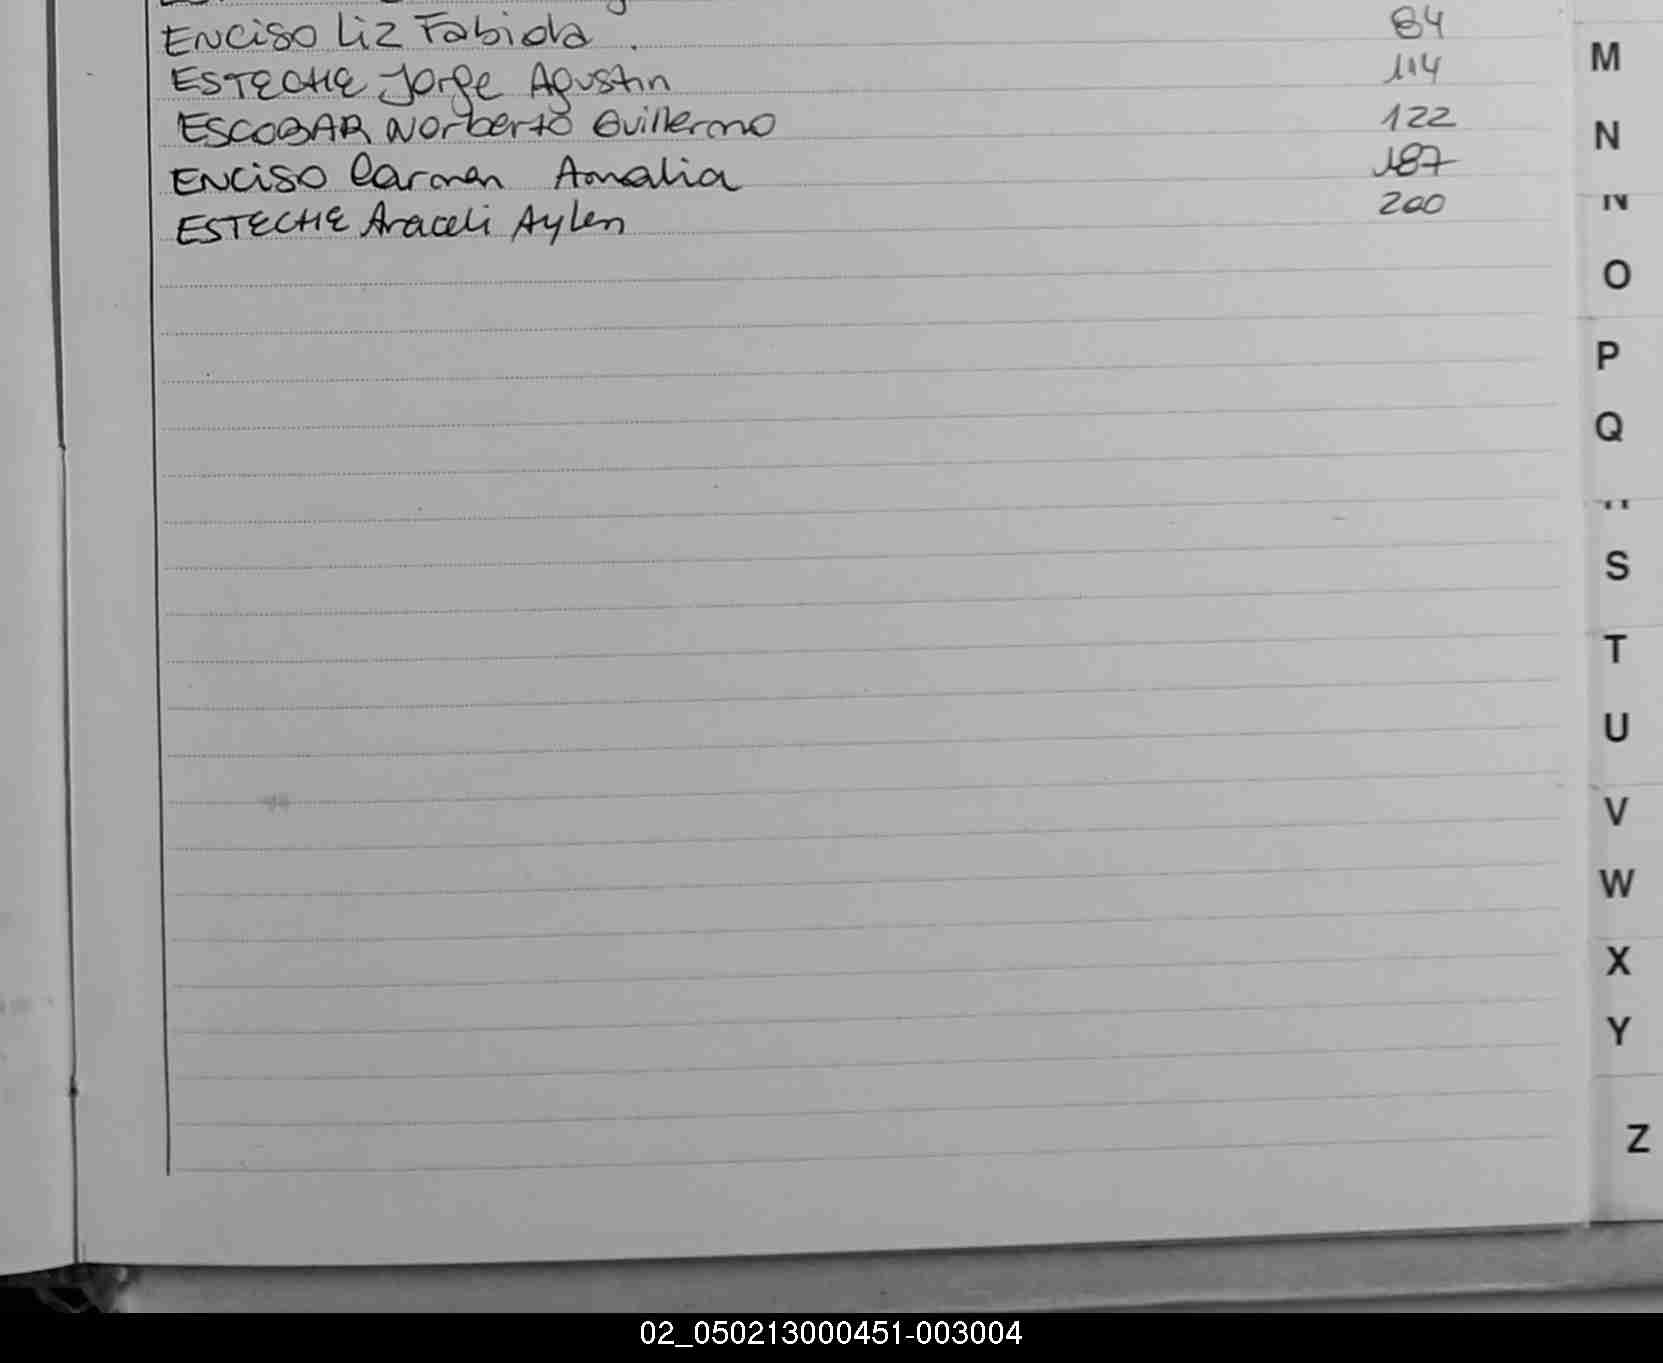 ENCISO Liz Fabiola 84
ESTECHE Jorge Agustin 114
ESCOBAR Norberto Guillermo 122
ENCISO Carmen Amalia 187
ESTECHE Araceli Aylen 200
M
N
N
O
P
Q
S
T
U
V
W
X
Y
Z
02_050213000451-003004